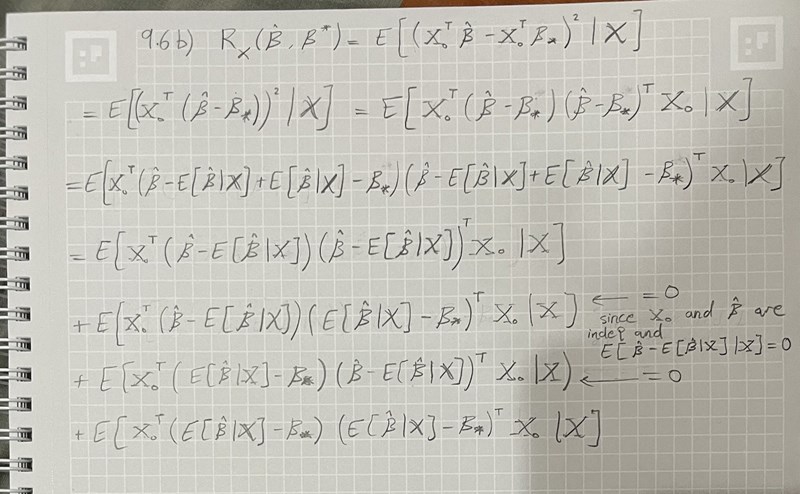 9.6b) R_X(β̂, β*) = E[(x₀ᵀ β̂ - x₀ᵀ β_*)² | X]
= E[(x₀ᵀ (β̂ - β_*))² | X] = E[x₀ᵀ (β̂ - β_*)(β̂ - β_*)ᵀ x₀ | X]
= E[x₀ᵀ (β̂ - E[β̂|X] + E[β̂|X] - β_*)(β̂ - E[β̂|X] + E[β̂|X] - β_*)ᵀ x₀ | X]
= E[x₀ᵀ (β̂ - E[β̂|X])(β̂ - E[β̂|X])ᵀ x₀ | X]
+ E[x₀ᵀ (β̂ - E[β̂|X])(E[β̂|X] - β_*)ᵀ x₀ | X] ← = 0
since x₀ and β̂ are
indep and
E[β̂ - E[β̂|X] | X] = 0
+ E[x₀ᵀ (E[β̂|X] - β_*)(β̂ - E[β̂|X])ᵀ x₀ | X) ← = 0
+ E[x₀ᵀ (E[β̂|X] - β_*) (E[β̂|X] - β_*)ᵀ x₀ | X]